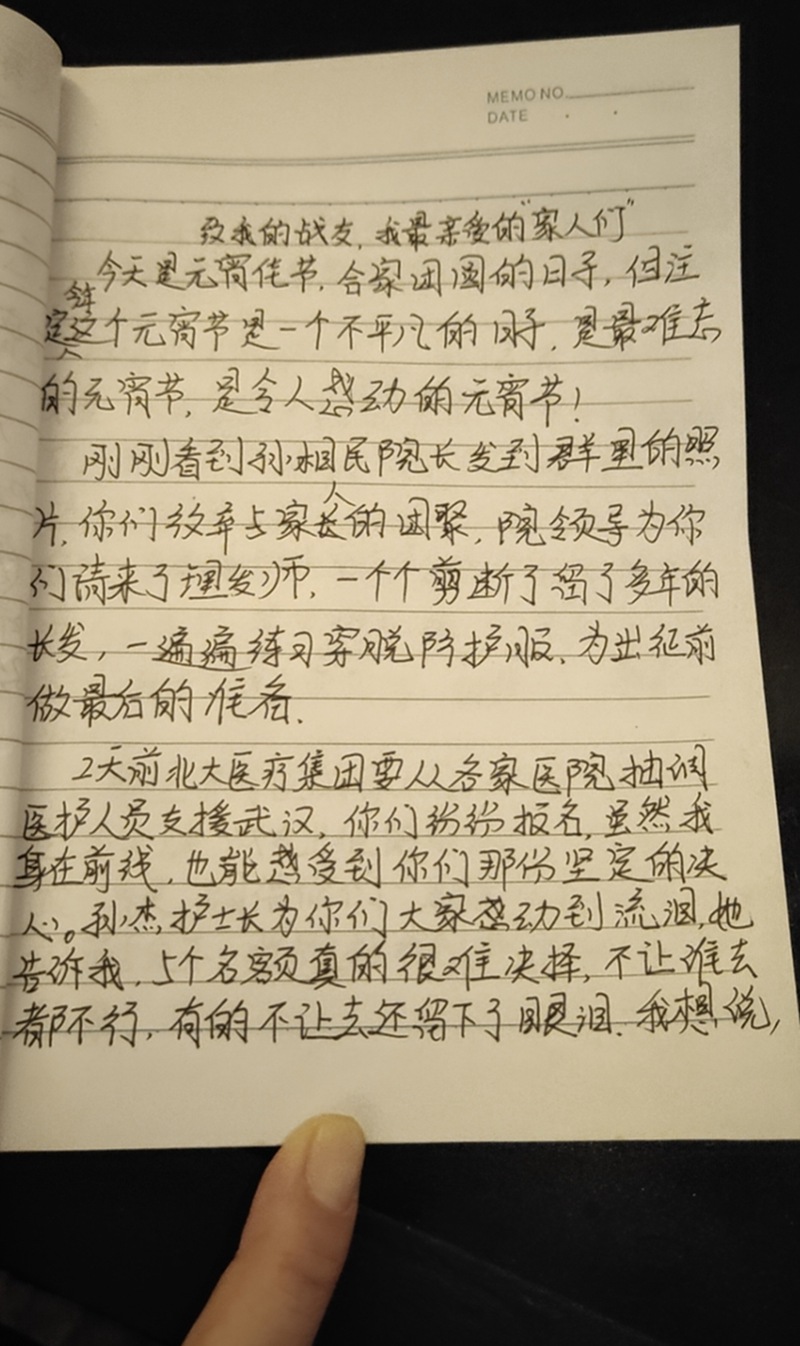 MEMO NO
DATE
致我的战友,我最亲爱的"家人们"
今天是元宵佳节,合家团圆的日子,但注
定今年这个元宵节是一个不平凡的日子,是最难忘
的元宵节,是令人感动的元宵节!
刚刚看到孙相民院长发到群里的照
片,你们放弃与家人的团聚,院领导为你
们请来了理发师,一个个剪断了留了多年的
长发,一遍遍练习穿脱防护服,为出征前
做最后的准备.
2天前北大医疗集团要从各家医院抽调
医护人员支援武汉,你们纷纷报名,虽然我
身在前线,也能感受到你们那份坚定的决
心。孙杰护士长为你们大家感动到流泪,她
告诉我,5个名额真的很难决择,不让谁去
都不行,有的不让去还留下了眼泪.我想说,